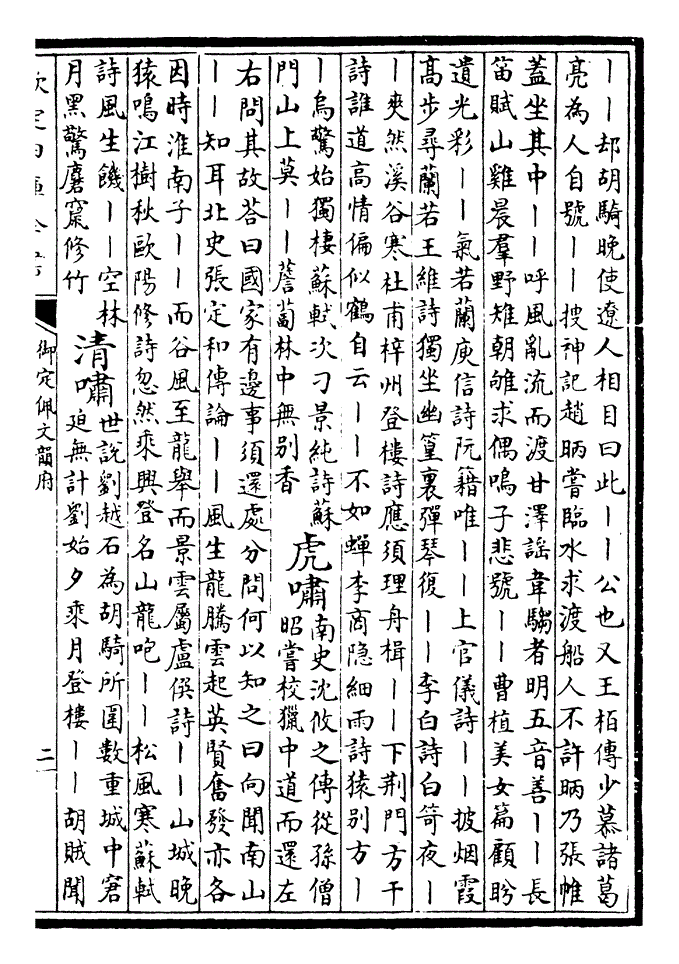 ——却胡騎晚使遼人相目曰此——公也又王栢傳少慕諸葛
亮為人自號——搜神記趙昞嘗臨水求渡船人不許昞乃張帷
蓋坐其中——呼風亂流而渡甘澤謡韋騶者明五音善——長
笛賦山雞晨羣野雉朝雊求偶鳴子悲號——曹植美女篇顧盻
遺光彩——氣若蘭庾信詩阮籍唯——上官儀詩——披烟霞
高步尋蘭若王維詩獨坐幽篁裏彈琴復——李白詩白笴夜—
—爽然溪谷寒杜甫梓州登樓詩應須理舟楫——下荆門方干
詩誰道高情偏似鶴自云——不如蟬李商隐細雨詩猿别方—
—烏驚始獨棲蘇軾次刁景純詩蘇
門山上莫——薝蔔林中無别香
虎嘯
南史沈攸之傳從孫僧
昭嘗校獵中道而還左
右問其故荅曰國家有邊事須還處分問何以知之曰向聞南山
——知耳北史張定和傳論——風生龍騰雲起英賢奮發亦各
因時淮南子——而谷風至龍舉而景雲屬盧僎詩——山城晚
猿鳴江樹秋歐陽修詩忽然乘興登名山龍咆——松風寒蘇軾
詩風生饑——空林
月黑驚麏竄修竹
清嘯
世說劉越石為胡騎所圍數重城中窘
迫無計劉始夕乘月登樓——胡賊聞
欽定四庫全書
御定佩文韻府
二